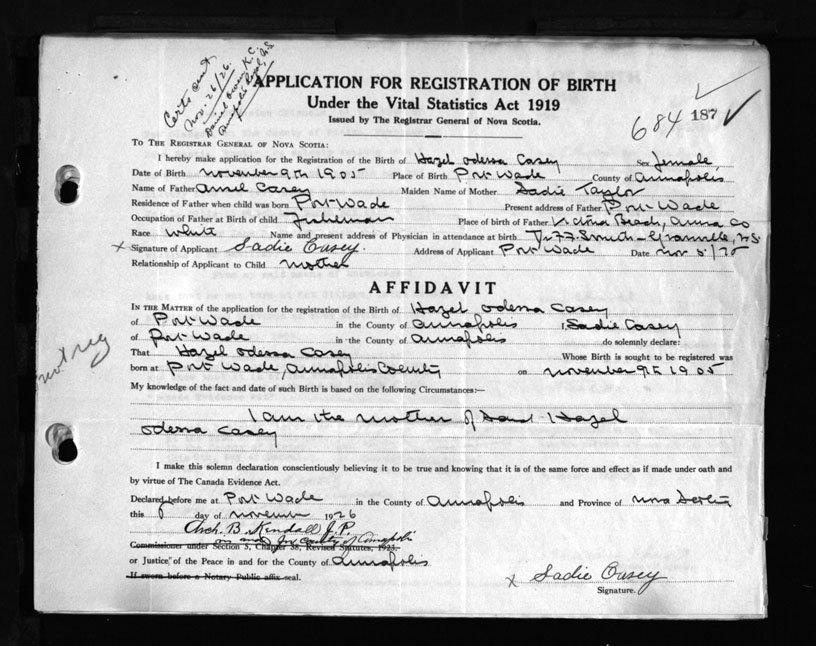 Certs sent
Nov. 26/26.
Daniel Owen, K.C.
Annapolis Royal, N.S.
APPLICATION FOR REGISTRATION OF BIRTH
Under the Vital Statistics Act 1919
Issued by The Registrar General of Nova Scotia.
684187
TO THE REGISTRAR GENERAL OF NOVA SCOTIA:
I hereby make application for the Registration of the Birth of Hazel Odessa Casey Sex female
Date of Birth november 9th 1905 Place of Birth Port Wade County of Annapolis
Name of Father Ansel Casey Maiden Name of Mother Sadie Taylor
Residence of Father when child was born Port Wade Present address of Father Port Wade
Occupation of Father at Birth of child Fisherman Place of birth of Father Victoria Beach, Anna Co
Race White Name and present address of Physician in attendance at birth Dr F.F. Smith - Granville, N.S.
x Signature of Applicant Sadie Casey. Address of Applicant Port Wade Date nov 5/25
Relationship of Applicant to Child mother
AFFIDAVIT
IN THE MATTER of the application for the registration of the Birth of Hazel Odessa Casey
of Port Wade in the County of Annapolis I, Sadie Casey
of Port Wade in the County of Annapolis do solemnly declare:
That Hazel Odessa Casey Whose Birth is sought to be registered was
born at Port Wade, Annapolis County on november 9th 1905
not reg
My knowledge of the fact and date of such Birth is based on the following Circumstances:—
I am the mother of said Hazel
Odessa Casey
I make this solemn declaration conscientiously believing it to be true and knowing that it is of the same force and effect as if made under oath and
by virtue of The Canada Evidence Act.
Declared before me at Port Wade in the County of Annapolis and Province of Nova Scotia
this day of november 1926
Arch. B. Kendall J.P.
in and for county of Annapolis
Commissioner under Section 5, Chapter 38, Revised Statutes, 1923.
or Justice of the Peace in and for the County of Annapolis
If sworn before a Notary Public affix seal.
x Sadie Casey
Signature.